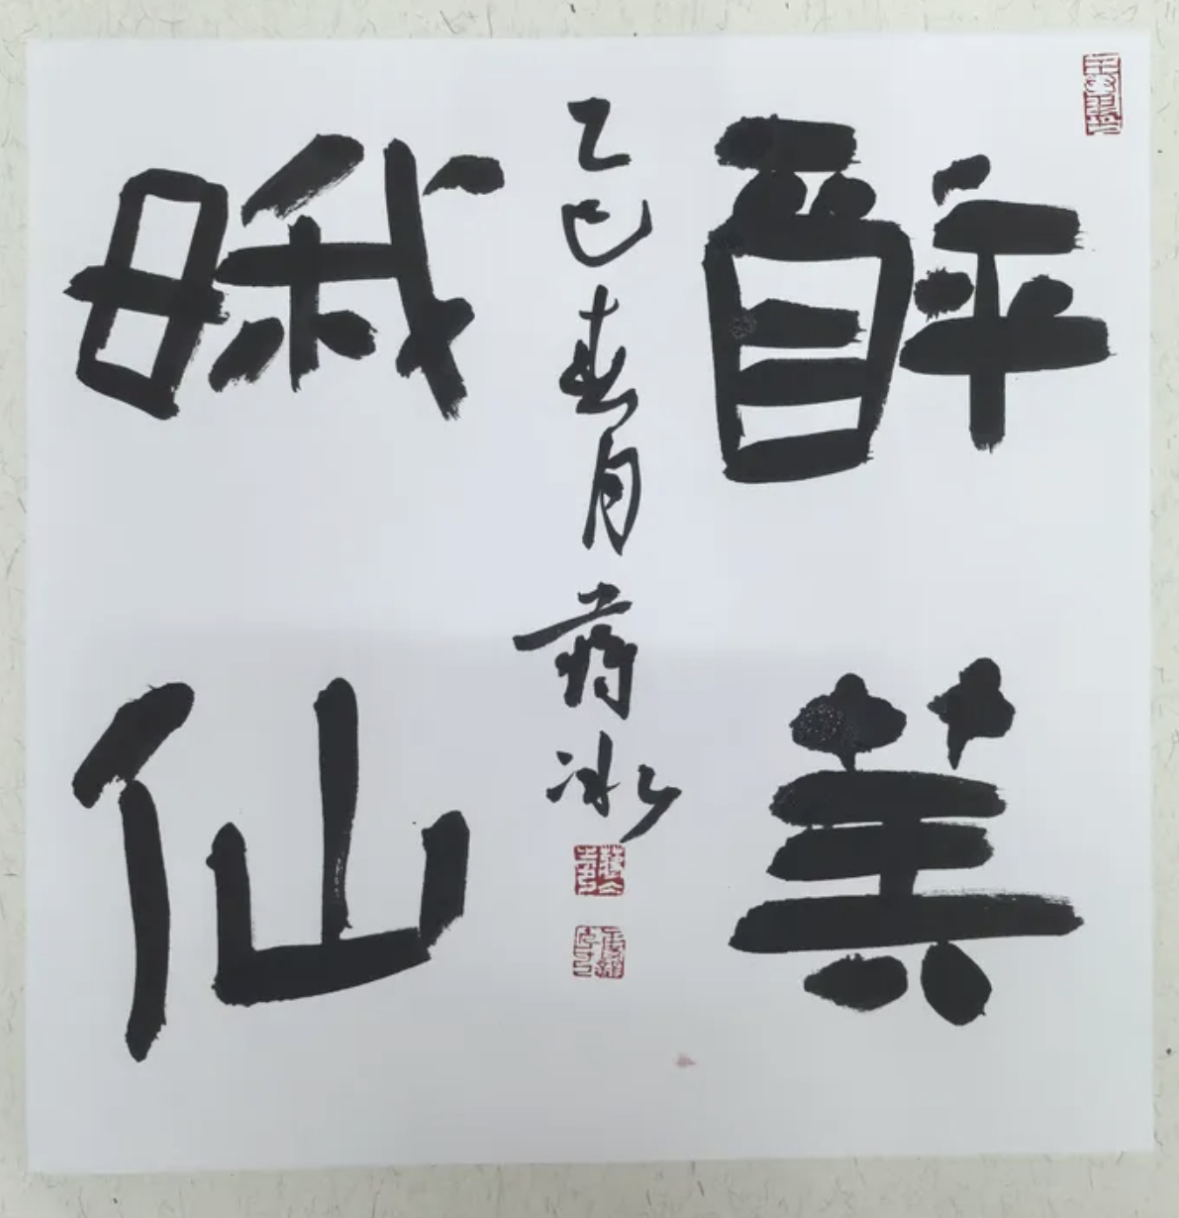 醉美
娥仙
乙巳春月 冰